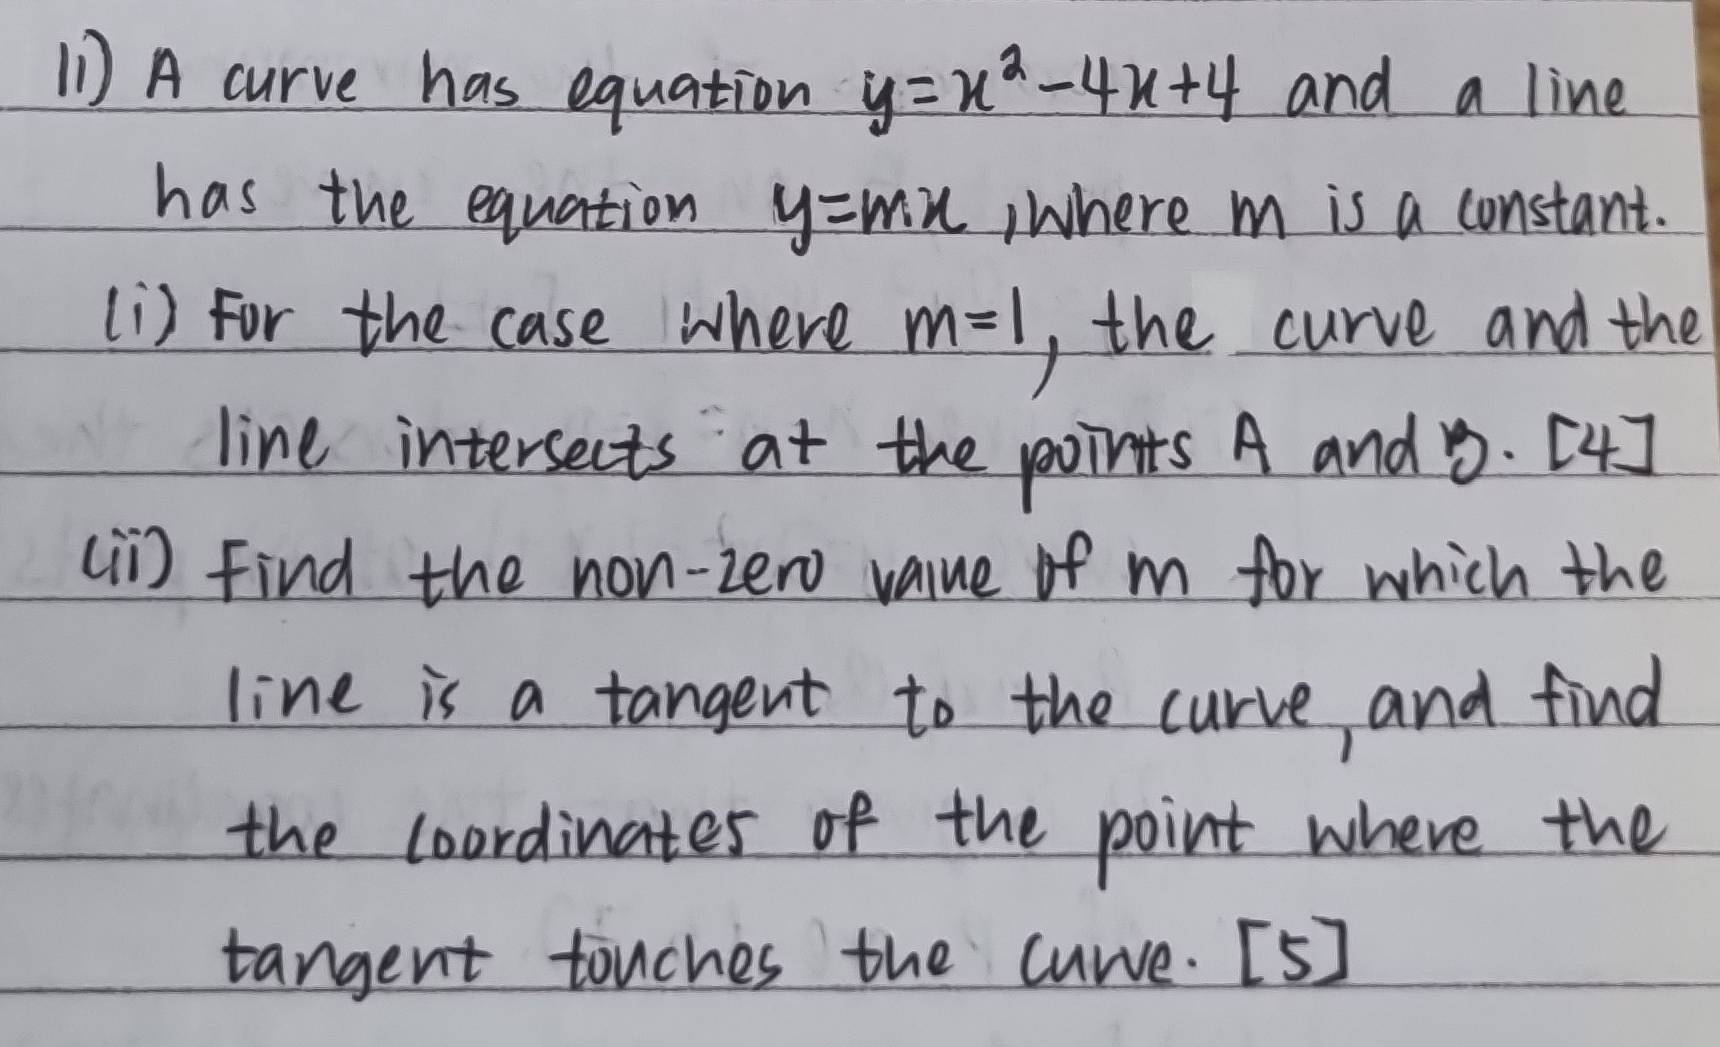 11) A curve has equation y=x²-4x+4 and a line
has the equation y=mx, where m is a constant.
(i) For the case where m=1, the curve and the
line intersects at the points A and B. [4]
(ii) Find the non-zero value of m for which the
line is a tangent to the curve, and find
the coordinates of the point where the
tangent touches the curve. [5]